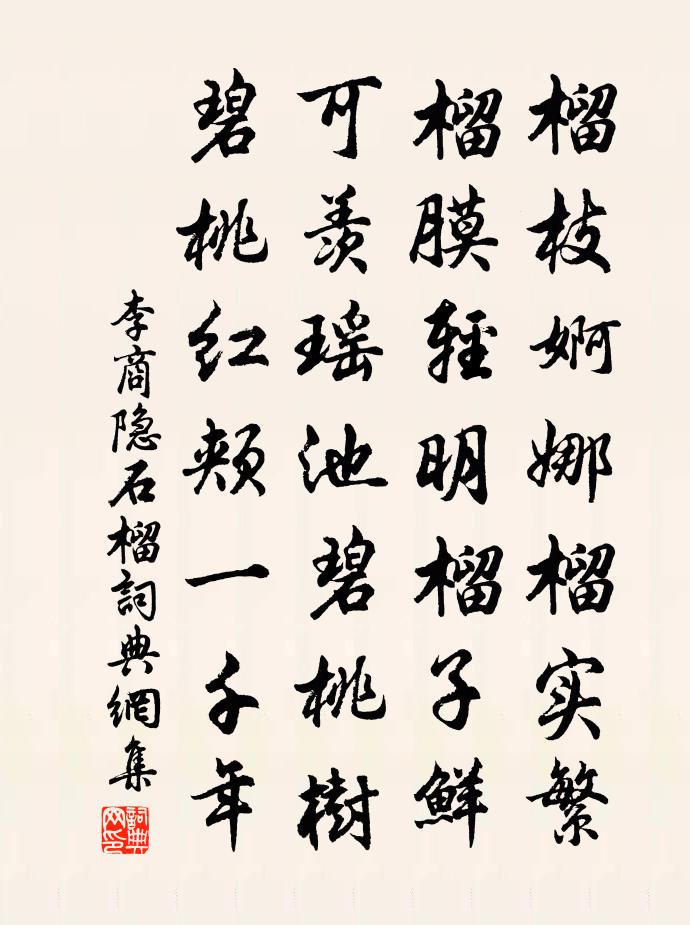 榴枝婀娜榴实繁
榴膜輕明榴子鮮
可羨瑤池碧桃樹
碧桃红頰一千年
李商隐石榴詞典網集
詞典网印